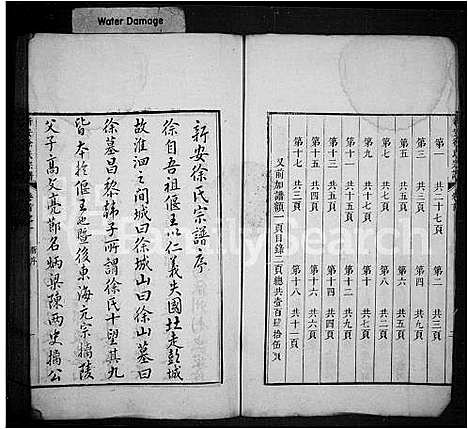 Water Damage
第一 共二十七頁
第二 共三頁
第三 共三頁
第四 共三頁
第五 共三頁
第六 共三頁
第七 共三頁
第八 共三頁
第九 共三頁
第十 共三頁
第十一 共三頁
第十二 共三頁
第十三 共三頁
第十四 共三頁
第十五 共四頁
第十六 共六頁
第十七 共三頁
第十八 共十一頁
又前加譜額一頁目錄二頁總共壹百肆拾伍頁
新安徐氏宗譜序
徐自吾祖偃王以仁義失國北走彭城
故淮泗之間城曰徐城山曰徐山墓曰
徐墓昌黎韓子所謂徐氏十望其九
皆本於偃王也暨後東海元宗擒陵
父子高文亮節名炳梁陳兩史擒公